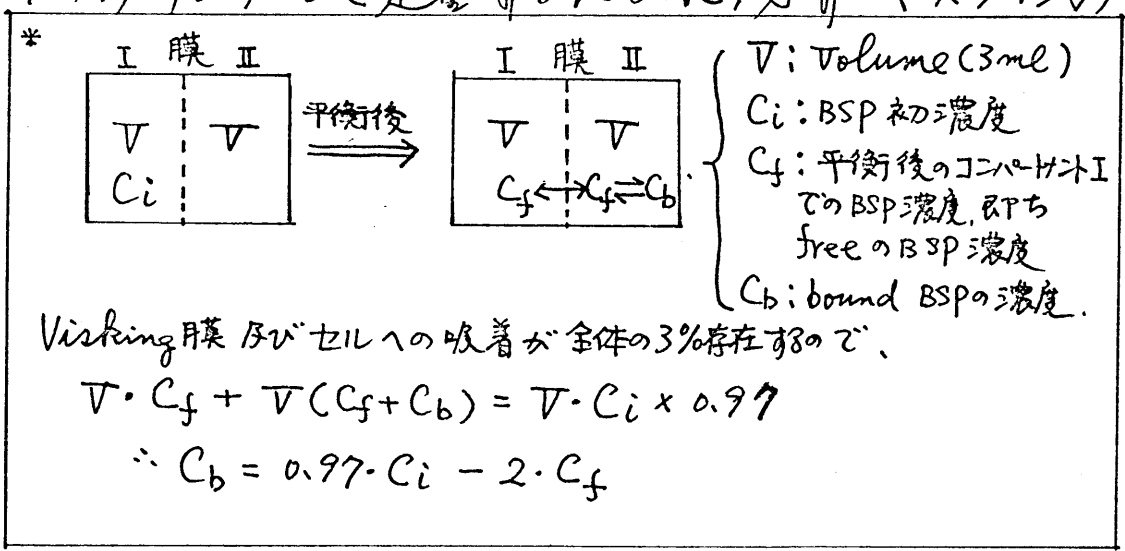 *
I 膜 II
V V
Ci
平衡後
I 膜 II
V V
Cf ⟷ Cf ⇌ Cb
V : Volume (3ml)
Ci : BSP 初濃度
Cf : 平衡後のコンパートメントI
でのBSP濃度, 即ち
free のBSP濃度
Cb : bound BSPの濃度.
Visking膜 及び セルへの吸着が全体の3%存在するので、
V・Cf + V(Cf+Cb) = V・Ci × 0.97
∴ Cb = 0.97・Ci − 2・Cf